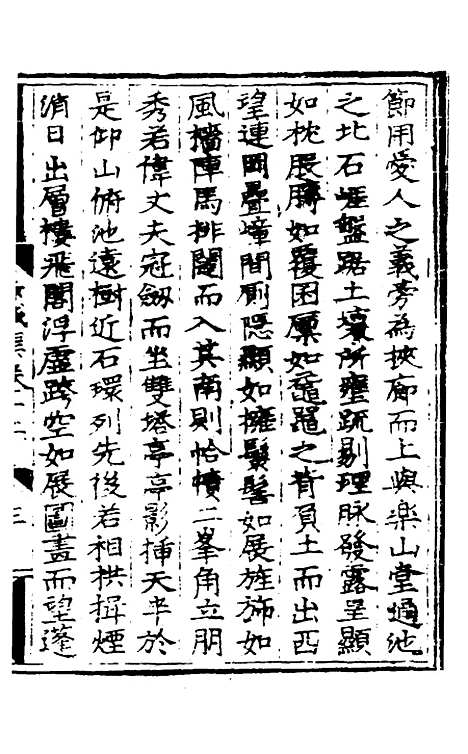 節用愛人之義旁為挾廊而上與樂山堂通池
之北石崖盤踞土壤所壅疏剔理脉發露呈顯
如枕股肱如覆囷廩如黿鼉之脊負土而出西
望連岡疊嶂間厠隱顯如擁鬟髻如展旌旆如
風檣陣馬排闥而入其南則恰幘二峯角立朋
秀若偉丈夫冠劒而坐雙塔亭亭影揷天半於
是仰山俯池遠樹近石環列先後若相拱揖煙
消日出層樓飛閣浮虛跨空如展圖畫而望蓬
集卷十二
三